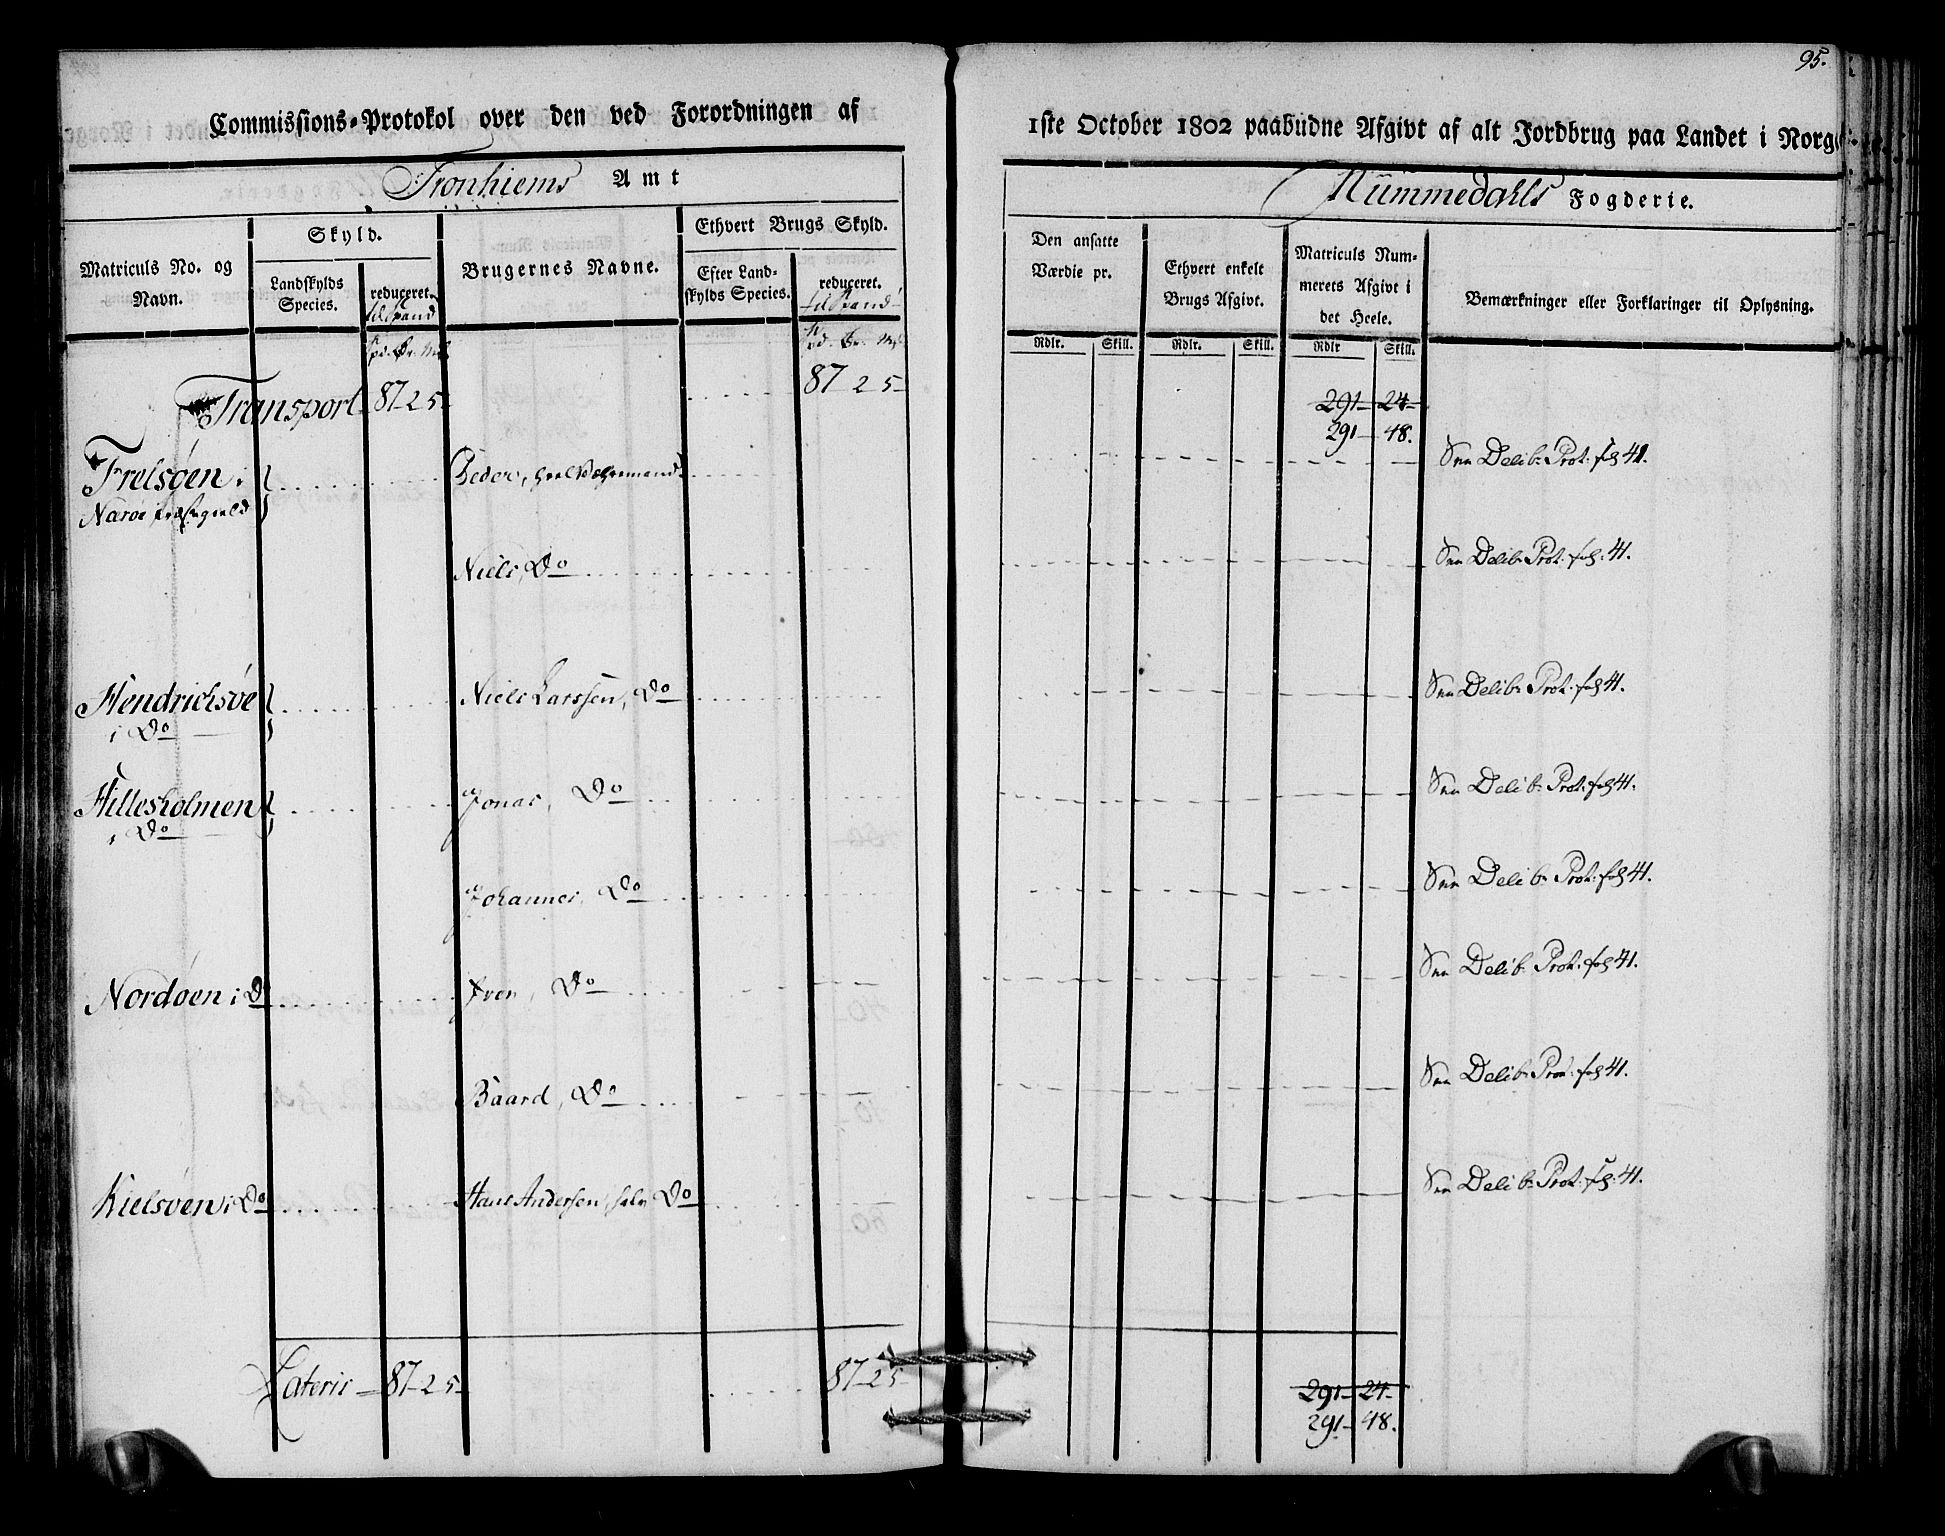 95.
Commissions-Protokol over den ved Forordningen af 1ste October 1802 paabudne Afgivt af alt Jordbrug paa Landet i Norge
Tronhiems Amt
Nummedahls Fogderie.
Matriculs No. og Navn.
Skyld.
Landskylds Species.
reduceret.
til Spand
Spd. Ør. Mk.
Brugernes Navne.
Ethvert Brugs Skyld.
Efter Landskylds Species.
reduceret.
til Spand
Spd. Ør. Mk.
Den ansatte Værdie pr.
Rdlr. Skill.
Ethvert enkelt Brugs Afgivt.
Rdlr. Skill.
Matriculs Nummerets Afgivt i det Heele.
Rdlr Skill.
Bemærkninger eller Forklaringer til Oplysning.
Transport 87-2 5- 87 2 5- 291-24-
291-48.
Frelsøen i Peder, See Delib: Prot: fol 41.
Narøe Præstegield
Niels, Do See Delib: Prot: fol: 41.
Hendrichsøe Niels Larssen, Do See Delib: Prot: fol 41.
i Do
Hillesholmen Jonas, Do See Delib: Prot: fol 41.
i Do
Johannes, Do See Delib: Prot: fol 41.
Nordøen i Do Iver, Do See Delib: Prot: fol 41.
Baard, Do See Delib: Prot: fol 41.
Kielsøen i Do Hans Andersen, Do See Delib: Prot: fol: 41.
Lateris 87-2 5- 87-2 5- 291-24-
291-48.